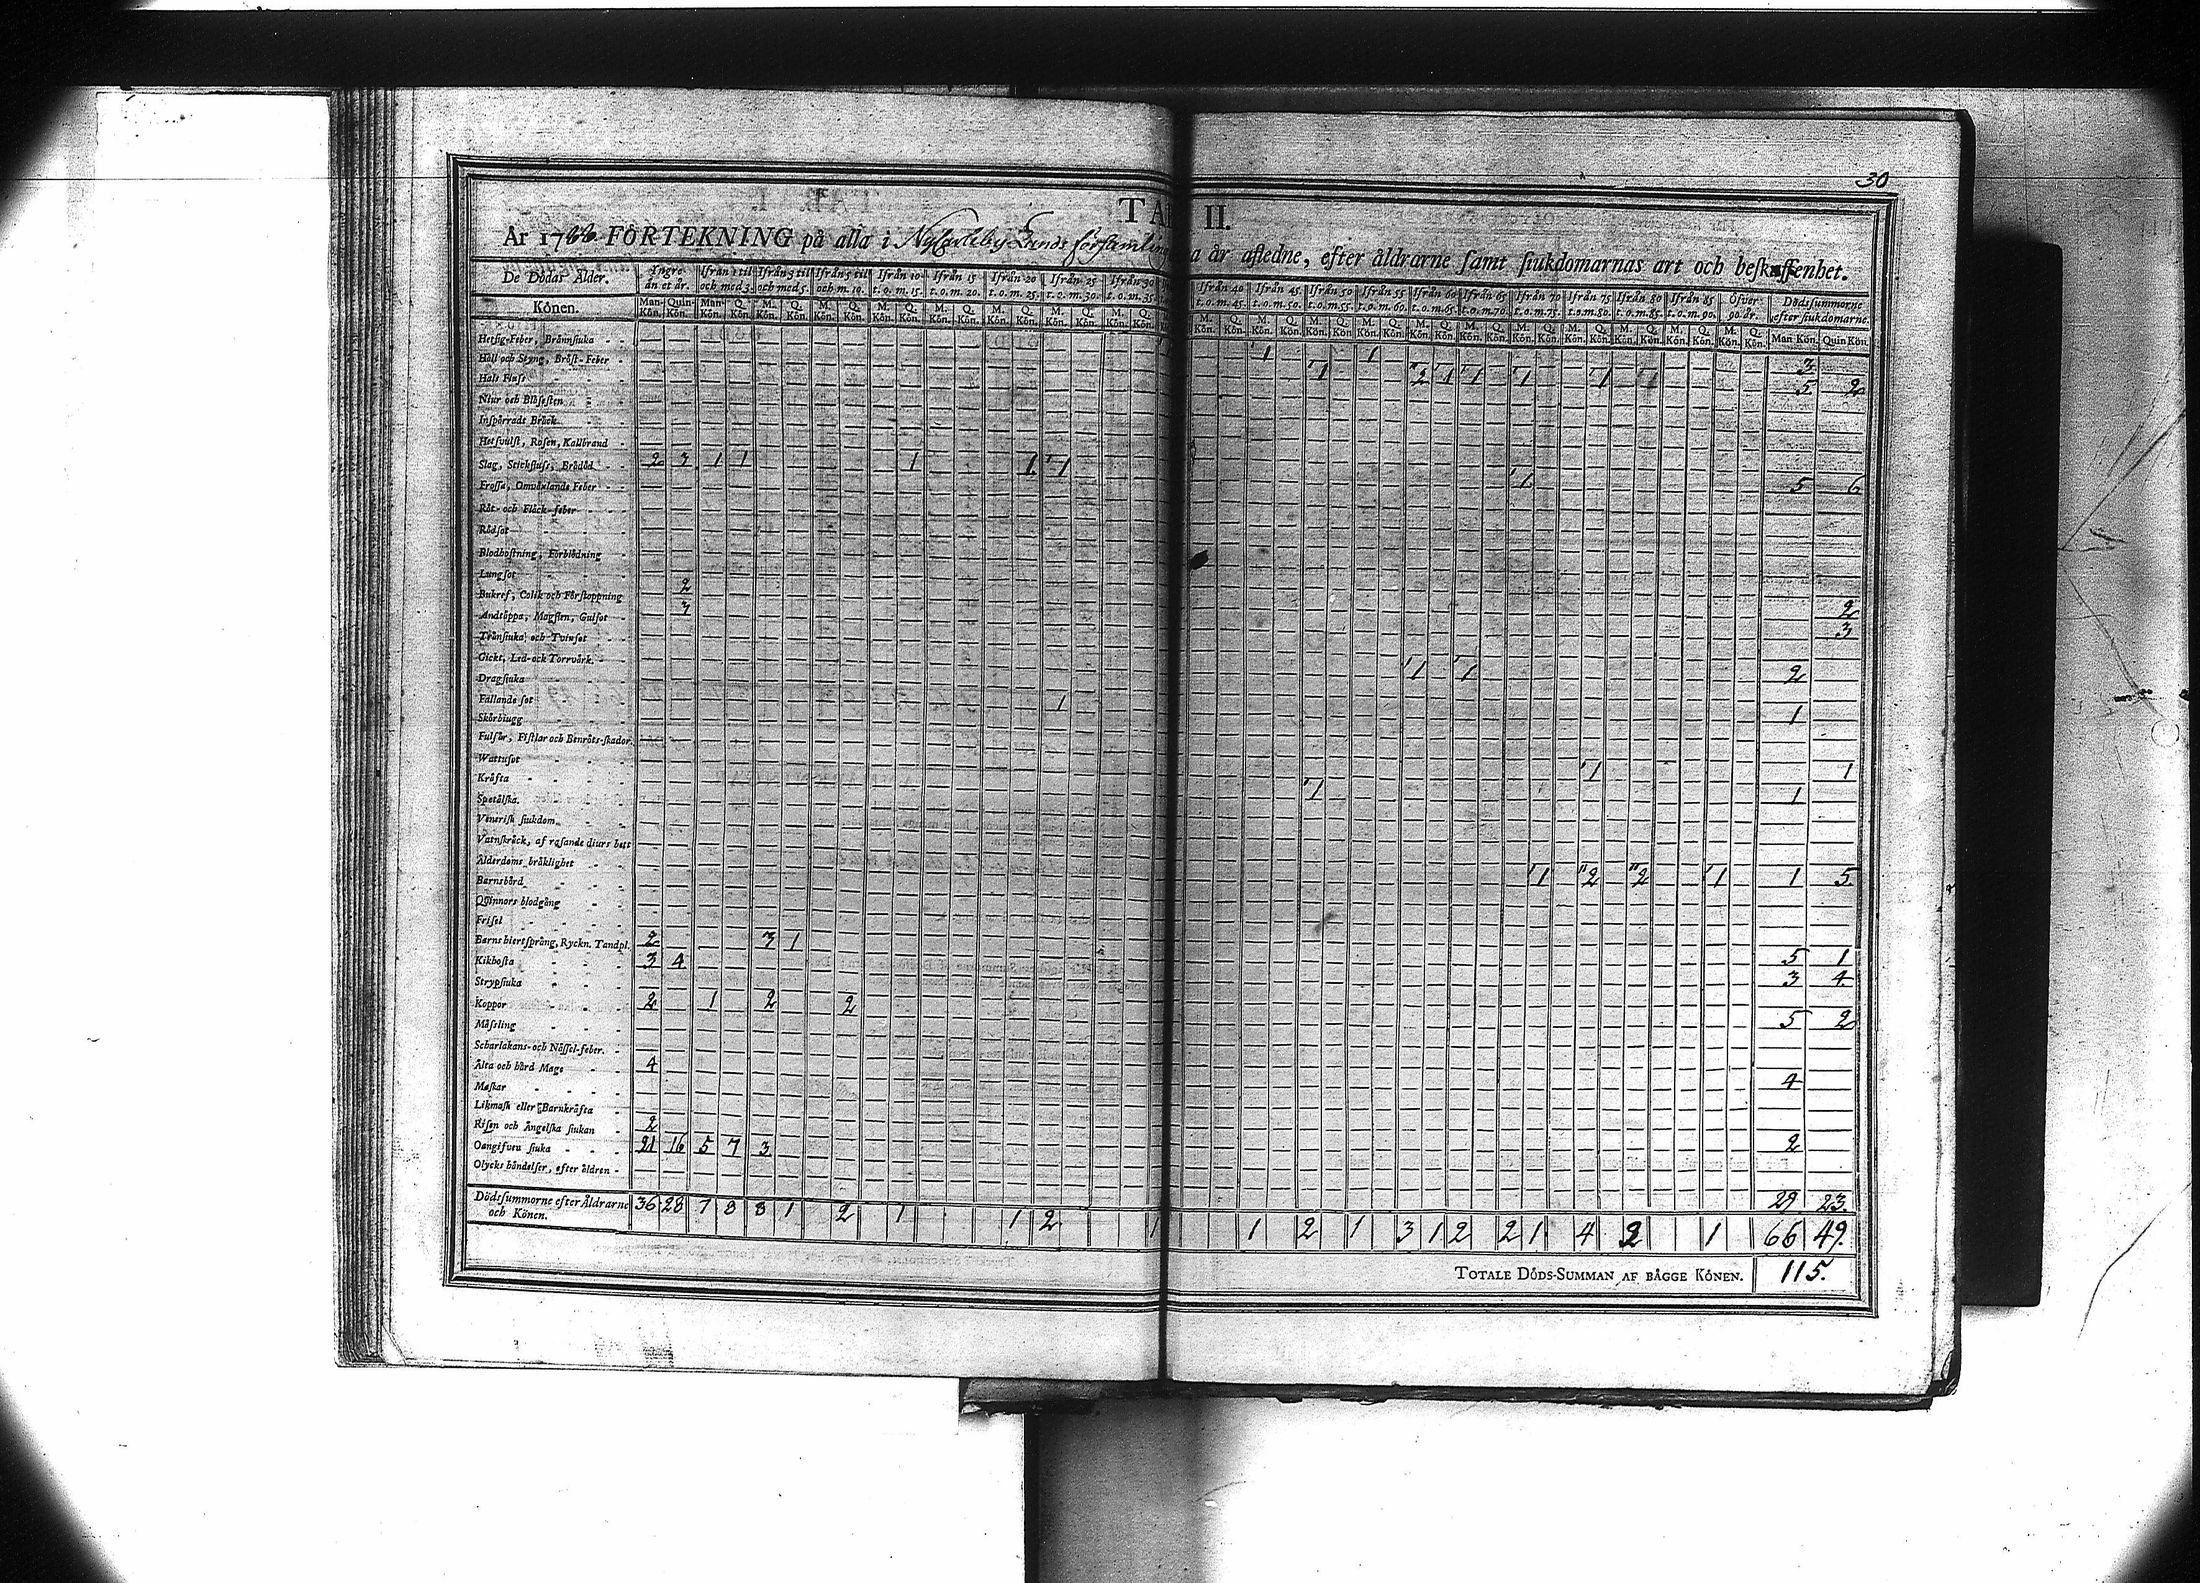 30
TAB II.
År 1766 FÖRTEKNING på alla i Nycarleby Lands församling a år afledne, efter åldrarne samt siukdomarnas art och beskaffenhet.
De Dödas Ålder. Yngre än et år. Ifrån 1 til och med 3. Ifrån 3 til och med 5. Ifrån 5 til och m. 10. Ifrån 10 t. o. m. 15. Ifrån 15 t. o. m. 20. Ifrån 20 t. o. m. 25. Ifrån 25 t. o. m. 30. Ifrån 30 t. o. m. 35. Ifrån 40 t. o. m. 45. Ifrån 45 t. o. m. 50. Ifrån 50 t. o. m. 55. Ifrån 55 t. o. m. 60. Ifrån 60 t. o. m. 65. Ifrån 65 t. o. m. 70. Ifrån 70 t. o. m. 75. Ifrån 75 t. o. m. 80. Ifrån 80 t. o. m. 85. Ifrån 85 t. o. m. 90. Öfver 90 år. Dödssummorne efter siukdomarne.
Könen. Man-Kön. Quin-Kön. Man-Kön. Q. Kön. M. Kön. Q. Kön. M. Kön. Q. Kön. Man Kön. Quin Kön.
Hetsig-Feber, Brännsiuka 1 1 3
Håll och Styng, Bröst-Feber 1 2 1 1 1 1 1 5 2
Hals Fluss
Niur och Blåsesten
Inspärradt Bråck
Hetsvulst, Rosen, Kallbrand
Slag, Stickfluss, Brådöd 2 3 1 1 1 1 1 1 5 6
Frossa, Omväxlande Feber
Röt- och Fläck-feber
Rödsot
Blodhostning, Förblödning
Lungsot
Bukref, Colik och Förstoppning 2 2
Andtäppa, Magsten, Gulsot 3 3
Tränsiuka och Tvinsot
Gickt, Led- och Torrvärk 1 1 2
Dragsiuka
Fallande sot 1 1
Skörbiugg
Fulsår, Fistlar och Benröts-skador.
Wattusot 1 1
Kräfta 1 1
Spetälska.
Venerisk siukdom
Vatnskräck, af rasande diurs bett
Ålderdoms bräklighet 1 2 2 1 1 5
Barnsbörd
Qvinnors blodgång
Frisel
Barns hiertsprång, Ryckn. Tandpl. 2 3 1 5 1
Kikhosta 3 4 3 4
Strypsiuka
Koppor 2 1 2 2 5 2
Mässling
Scharlakans- och Nässel-feber.
Älta och hård Mage 4 4
Maskar
Likmask eller Barnkräfta
Risen och Ängelska siukan 2 2
Oangifven siuka 21 16 5 7 3 29 23
Olycks händelser, efter åldren
Dödssummorne efter Åldrarne och Könen. 36 28 7 8 8 1 2 1 1 2 1 1 2 1 3 1 2 2 1 4 2 1 66 49.
TOTALE DÖDS-SUMMAN AF BÄGGE KÖNEN. 115.